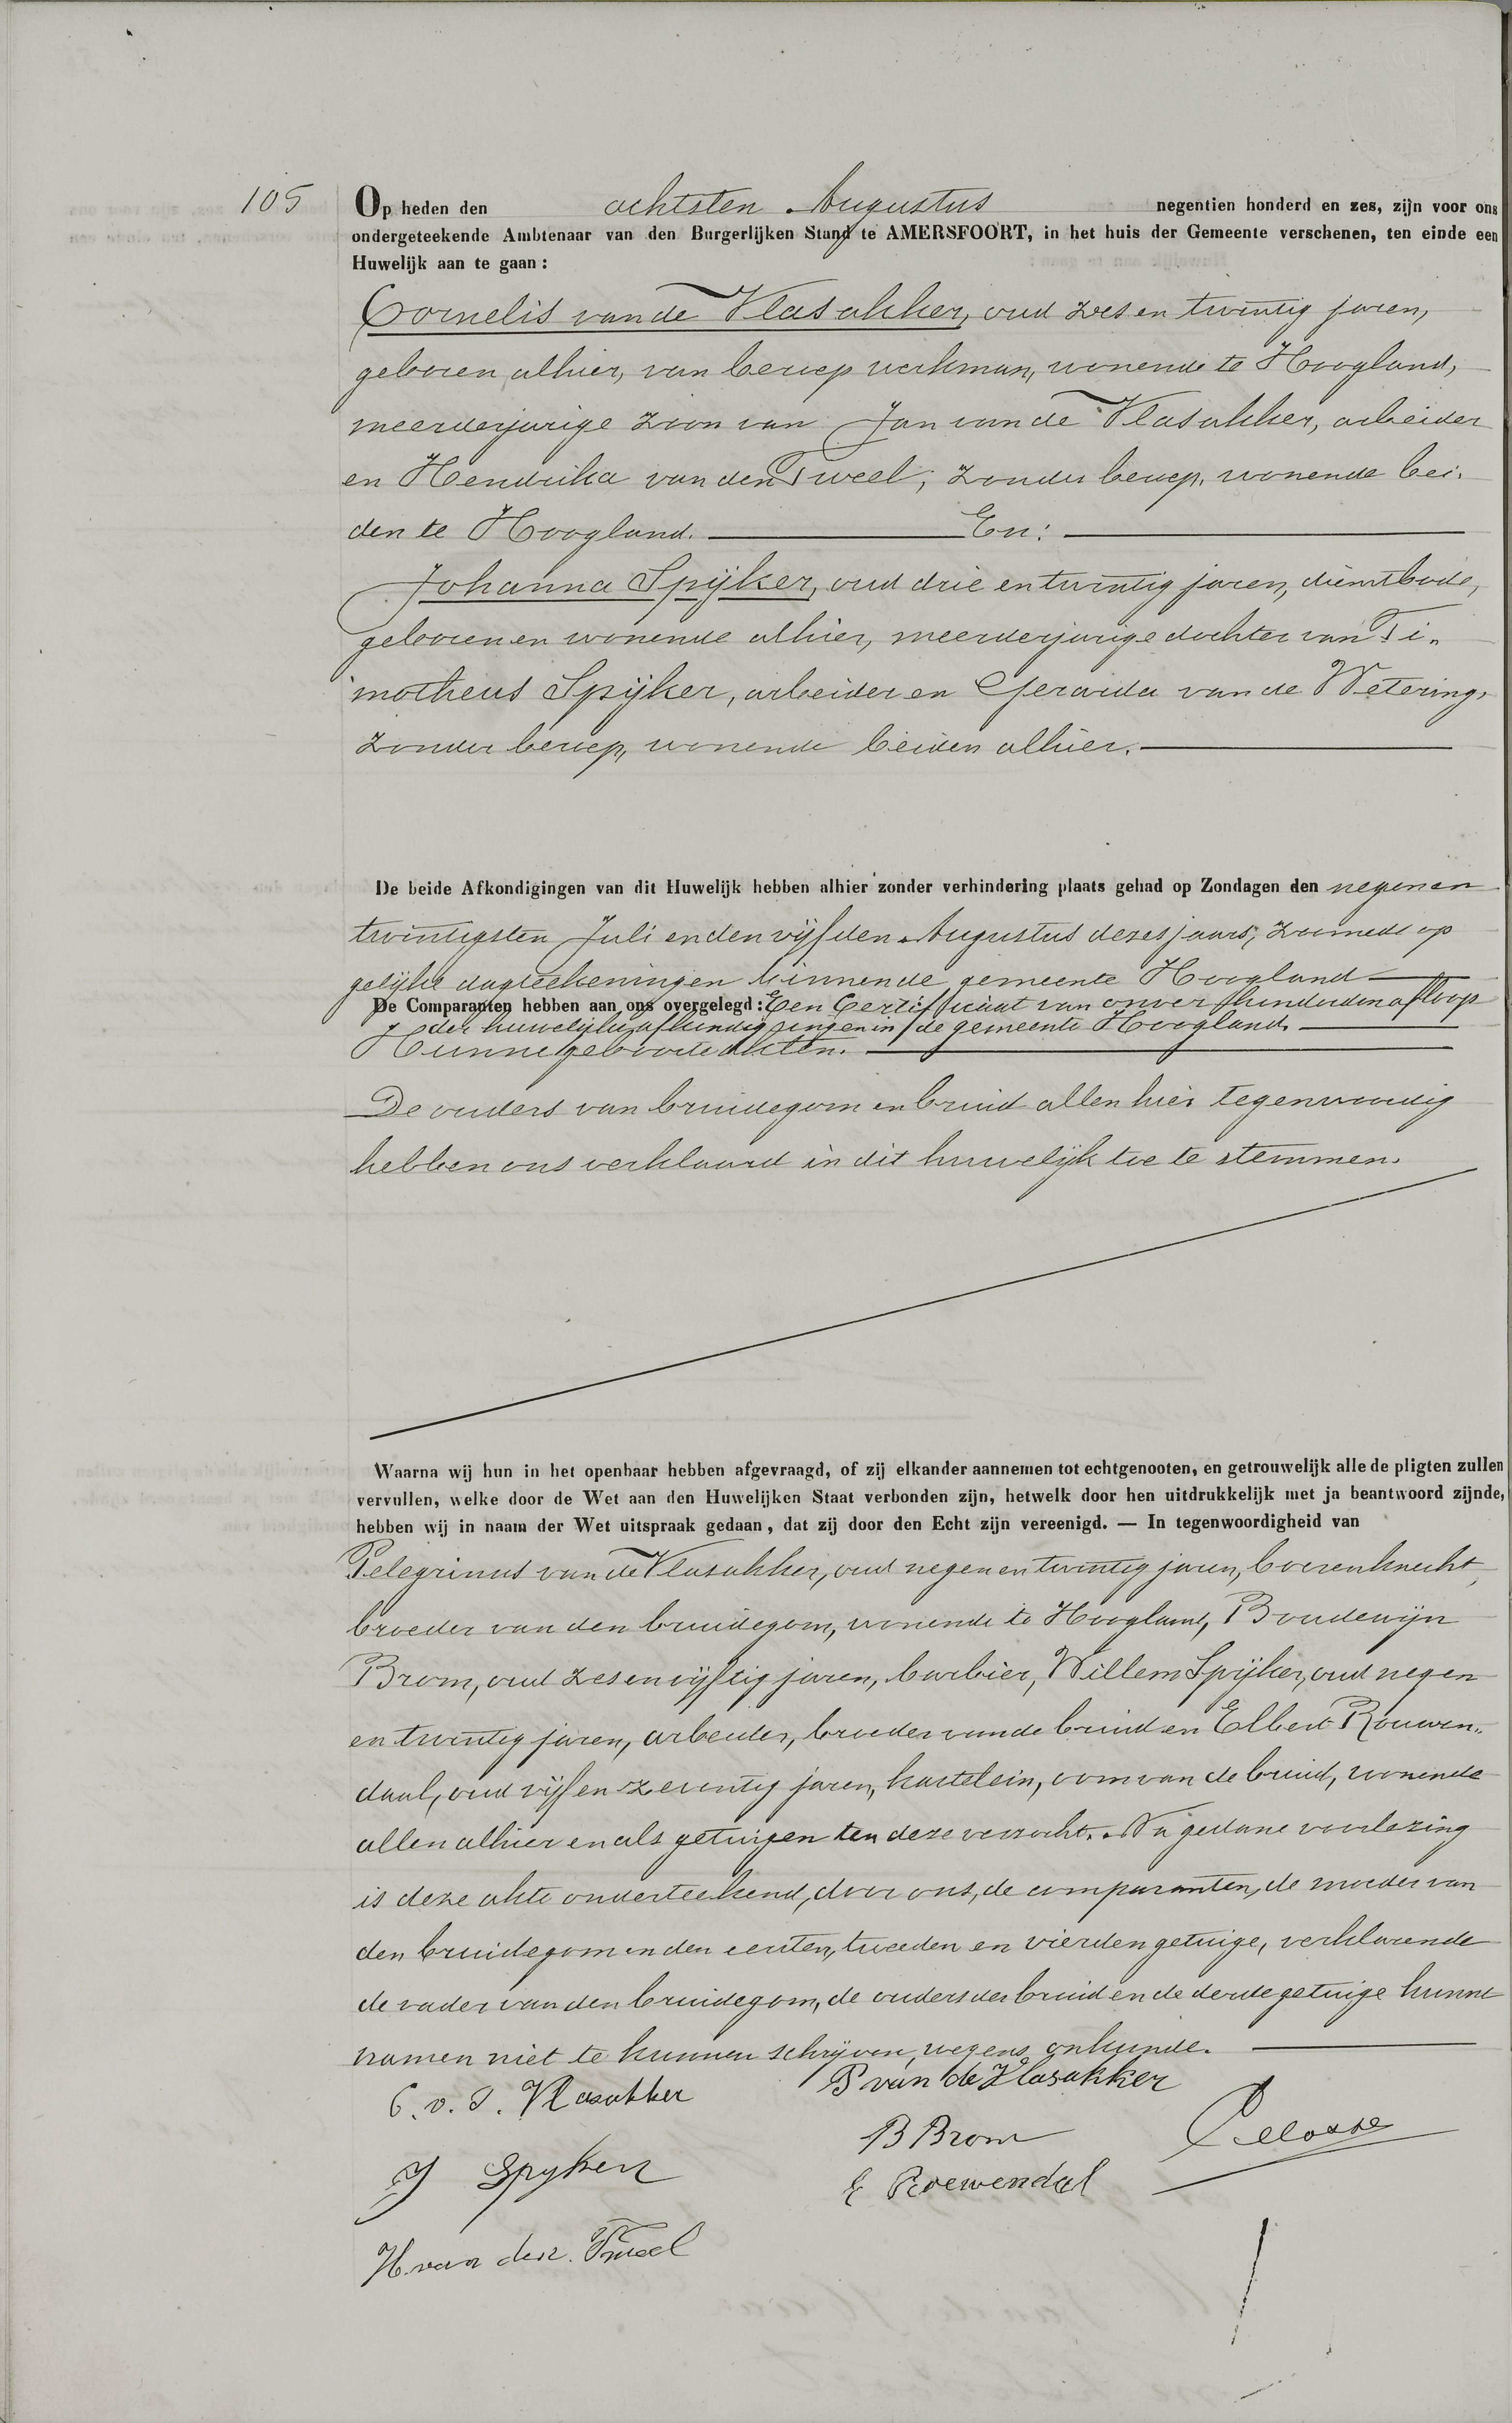 105
Op heden den achtsten Augustus negentien honderd en zes, zijn voor ons
ondergeteekende Ambtenaar van den Burgerlijken Stand te AMERSFOORT, in het huis der Gemeente verschenen, ten einde een
Huwelijk aan te gaan:
Cornelis van de Vlasakker, oud zes en twintig jaren,
geboren alhier, van beroep werkman, wonende te Hoogland,
meerderjarige zoon van Jan van de Vlasakker, arbeider
en Hendrika van den Tweel, zonder beroep, wonende bei-
den te Hoogland. En:
Johanna Spijker, oud drie en twintig jaren, dienstbode,
geboren en wonende alhier, meerderjarige dochter van Ti-
motheus Spijker, arbeider en Gerarda van de Wetering,
zonder beroep, wonende beiden alhier.
De beide Afkondigingen van dit Huwelijk hebben alhier zonder verhindering plaats gehad op Zondagen den negen en
twintigsten Juli en den vijfden Augustus dezes jaars, zoomede op
gelijke dagteekeningen binnen de gemeente Hoogland
De Comparanten hebben aan ons overgelegd: Een Certificaat van onverhinderden afloop
der huwelijksafkondigingen in de gemeente Hoogland.
Hunne geboorteakten.
De ouders van bruidegom en bruid allen hier tegenwoordig
hebben ons verklaard in dit huwelijk toe te stemmen.
Waarna wij hun in het openbaar hebben afgevraagd, of zij elkander aannemen tot echtgenooten, en getrouwelijk alle de pligten zullen
vervullen, welke door de Wet aan den Huwelijken Staat verbonden zijn, hetwelk door hen uitdrukkelijk met ja beantwoord zijnde,
hebben wij in naam der Wet uitspraak gedaan, dat zij door den Echt zijn vereenigd. — In tegenwoordigheid van
Pelegrinus van de Vlasakker, oud negen en twintig jaren, boerenknecht,
broeder van den bruidegom, wonende te Hoogland, Boudewijn
Brom, oud zes en vijftig jaren, barbier, Willem Spijker, oud negen
en twintig jaren, arbeider, broeder van de bruid en Elbert Rouwen-
daal, oud vijf en zeventig jaren, kastelein, oom van de bruid, wonende
allen alhier en als getuigen ten deze verzocht. Na gedane voorlezing
is deze akte onderteekend, door ons, de comparanten, de moeder van
den bruidegom en den eersten, tweeden en vierden getuige, verklarende
de vader van den bruidegom, de ouders der bruid en de derde getuige hunne
namen niet te kunnen schrijven, wegens onkunde.
C. v. d. Vlasakker
P van de Vlasakker
B Brom
J Spyker
E Roewendal
H. van den Tweel